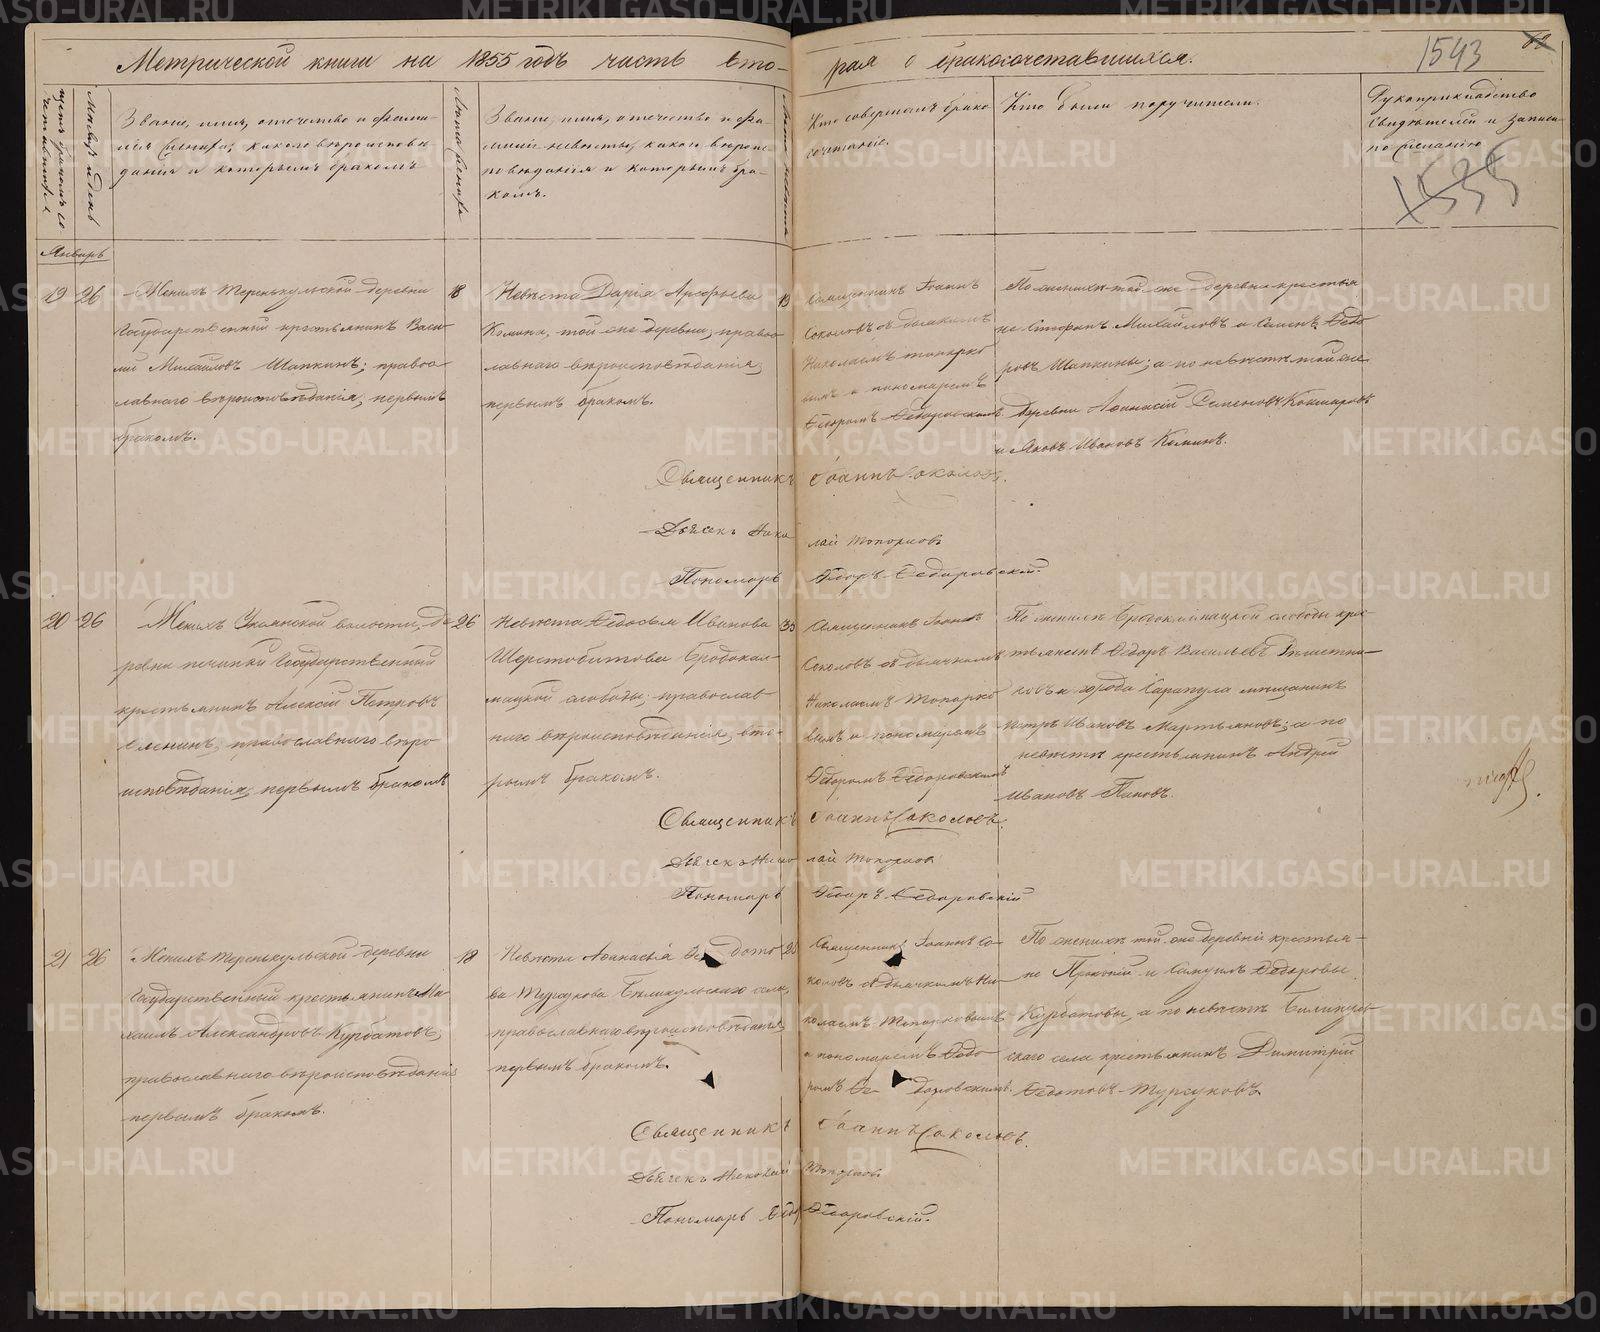 Метрической книги на 1855 годъ часть вто-
рая о бракосочетавшихся.
1543
Мѣсяцъ и день
Званіе, имя, отечество и фами-
лія жениха, какого вѣроисповѣ-
данія и которымъ бракомъ
Лѣта жениха
Званіе, имя, отечество и фа-
милія невѣсты, какого вѣроис-
повѣданія и которымъ бра-
комъ.
Лѣта невѣсты
Кто совершалъ брако
сочетаніе.
Кто были поручители.
Рукоприкладство
свидѣтелей и записи
по желанію
1535
Январь
19
26
Женихъ Теренкульской деревни
Государственный крестьянинъ Васи-
лій Михайловъ Шапкинъ; право-
славнаго вѣроисповѣданія, первымъ
бракомъ.
18
Невѣста Дарія Арефьева
Комина, той же деревни, право-
славнаго вѣроисповѣданія,
первымъ бракомъ.
19
Священникъ Іоаннъ
Соколовъ съ дьячкомъ
Николаемъ Топорко
вымъ и пономаремъ
Ѳедоромъ Ѳедоровскимъ
По женихѣ той же деревни крестья
не Стефанъ Михайловъ и Семенъ Ѳедо
ровъ Шапкины; а по невѣстѣ той же
деревни Аѳанасій Семеновъ Кокшаровъ
и Яковъ Ивановъ Коминъ.
Священникъ Іоаннъ Соколовъ.
Дьячекъ Николай Топорковъ
Пономарь Ѳедоръ Ѳедоровскій.
20
26
Женихъ волости, де
ревни Государственный
крестьянинъ Алексій Петровъ
православнаго вѣро
исповѣданія, первымъ бракомъ
26
Невѣста Ѳедосья Иванова
Шерстобитова Бродокал-
мацкой слободы, православ
наго вѣроисповѣданія, вто-
рымъ бракомъ.
35
Священникъ Іоаннъ
Соколовъ съ дьячкомъ
Николаемъ Топорко
вымъ и пономаремъ
Ѳедоромъ Ѳедоровскимъ
По женихѣ Бродокалмацкой слободы крес
тьянинъ Ѳедоръ Васильевъ
и города Сарапула мѣщанинъ
Петръ Ивановъ Мартьяновъ; а по
невѣстѣ крестьянинъ Андрей
Ивановъ Пановъ.
Священникъ Іоаннъ Соколовъ.
Дьячекъ Николай Топорковъ
Пономарь Ѳедоръ Ѳедоровскій
21
26
Женихъ Теренкульской деревни
Государственный крестьянинъ Ми-
хаилъ Александровъ Курбатовъ,
православнаго вѣроисповѣданія
первымъ бракомъ.
18
Невѣста Аѳанасія Ѳедото
ва Турсукова Беликульскаго села,
православнаго вѣроисповѣданія,
первымъ бракомъ.
Священникъ Іоаннъ Со-
коловъ съ дьячкомъ Ни-
колаемъ Топорковымъ
и пономаремъ Ѳедо-
ромъ Ѳедоровскимъ.
По женихѣ той же деревни крестья-
не Прокопій и Самуилъ Ѳедоровы
Курбатовы, а по невѣстѣ Беликуль-
скаго села крестьянинъ Димитрій
Ѳедотовъ Турсуковъ.
Священникъ Іоаннъ Соколовъ.
Дьячекъ Николай Топорковъ
Пономарь Ѳедоръ Ѳедоровскій.
METRIKI.GASO-URAL.RU